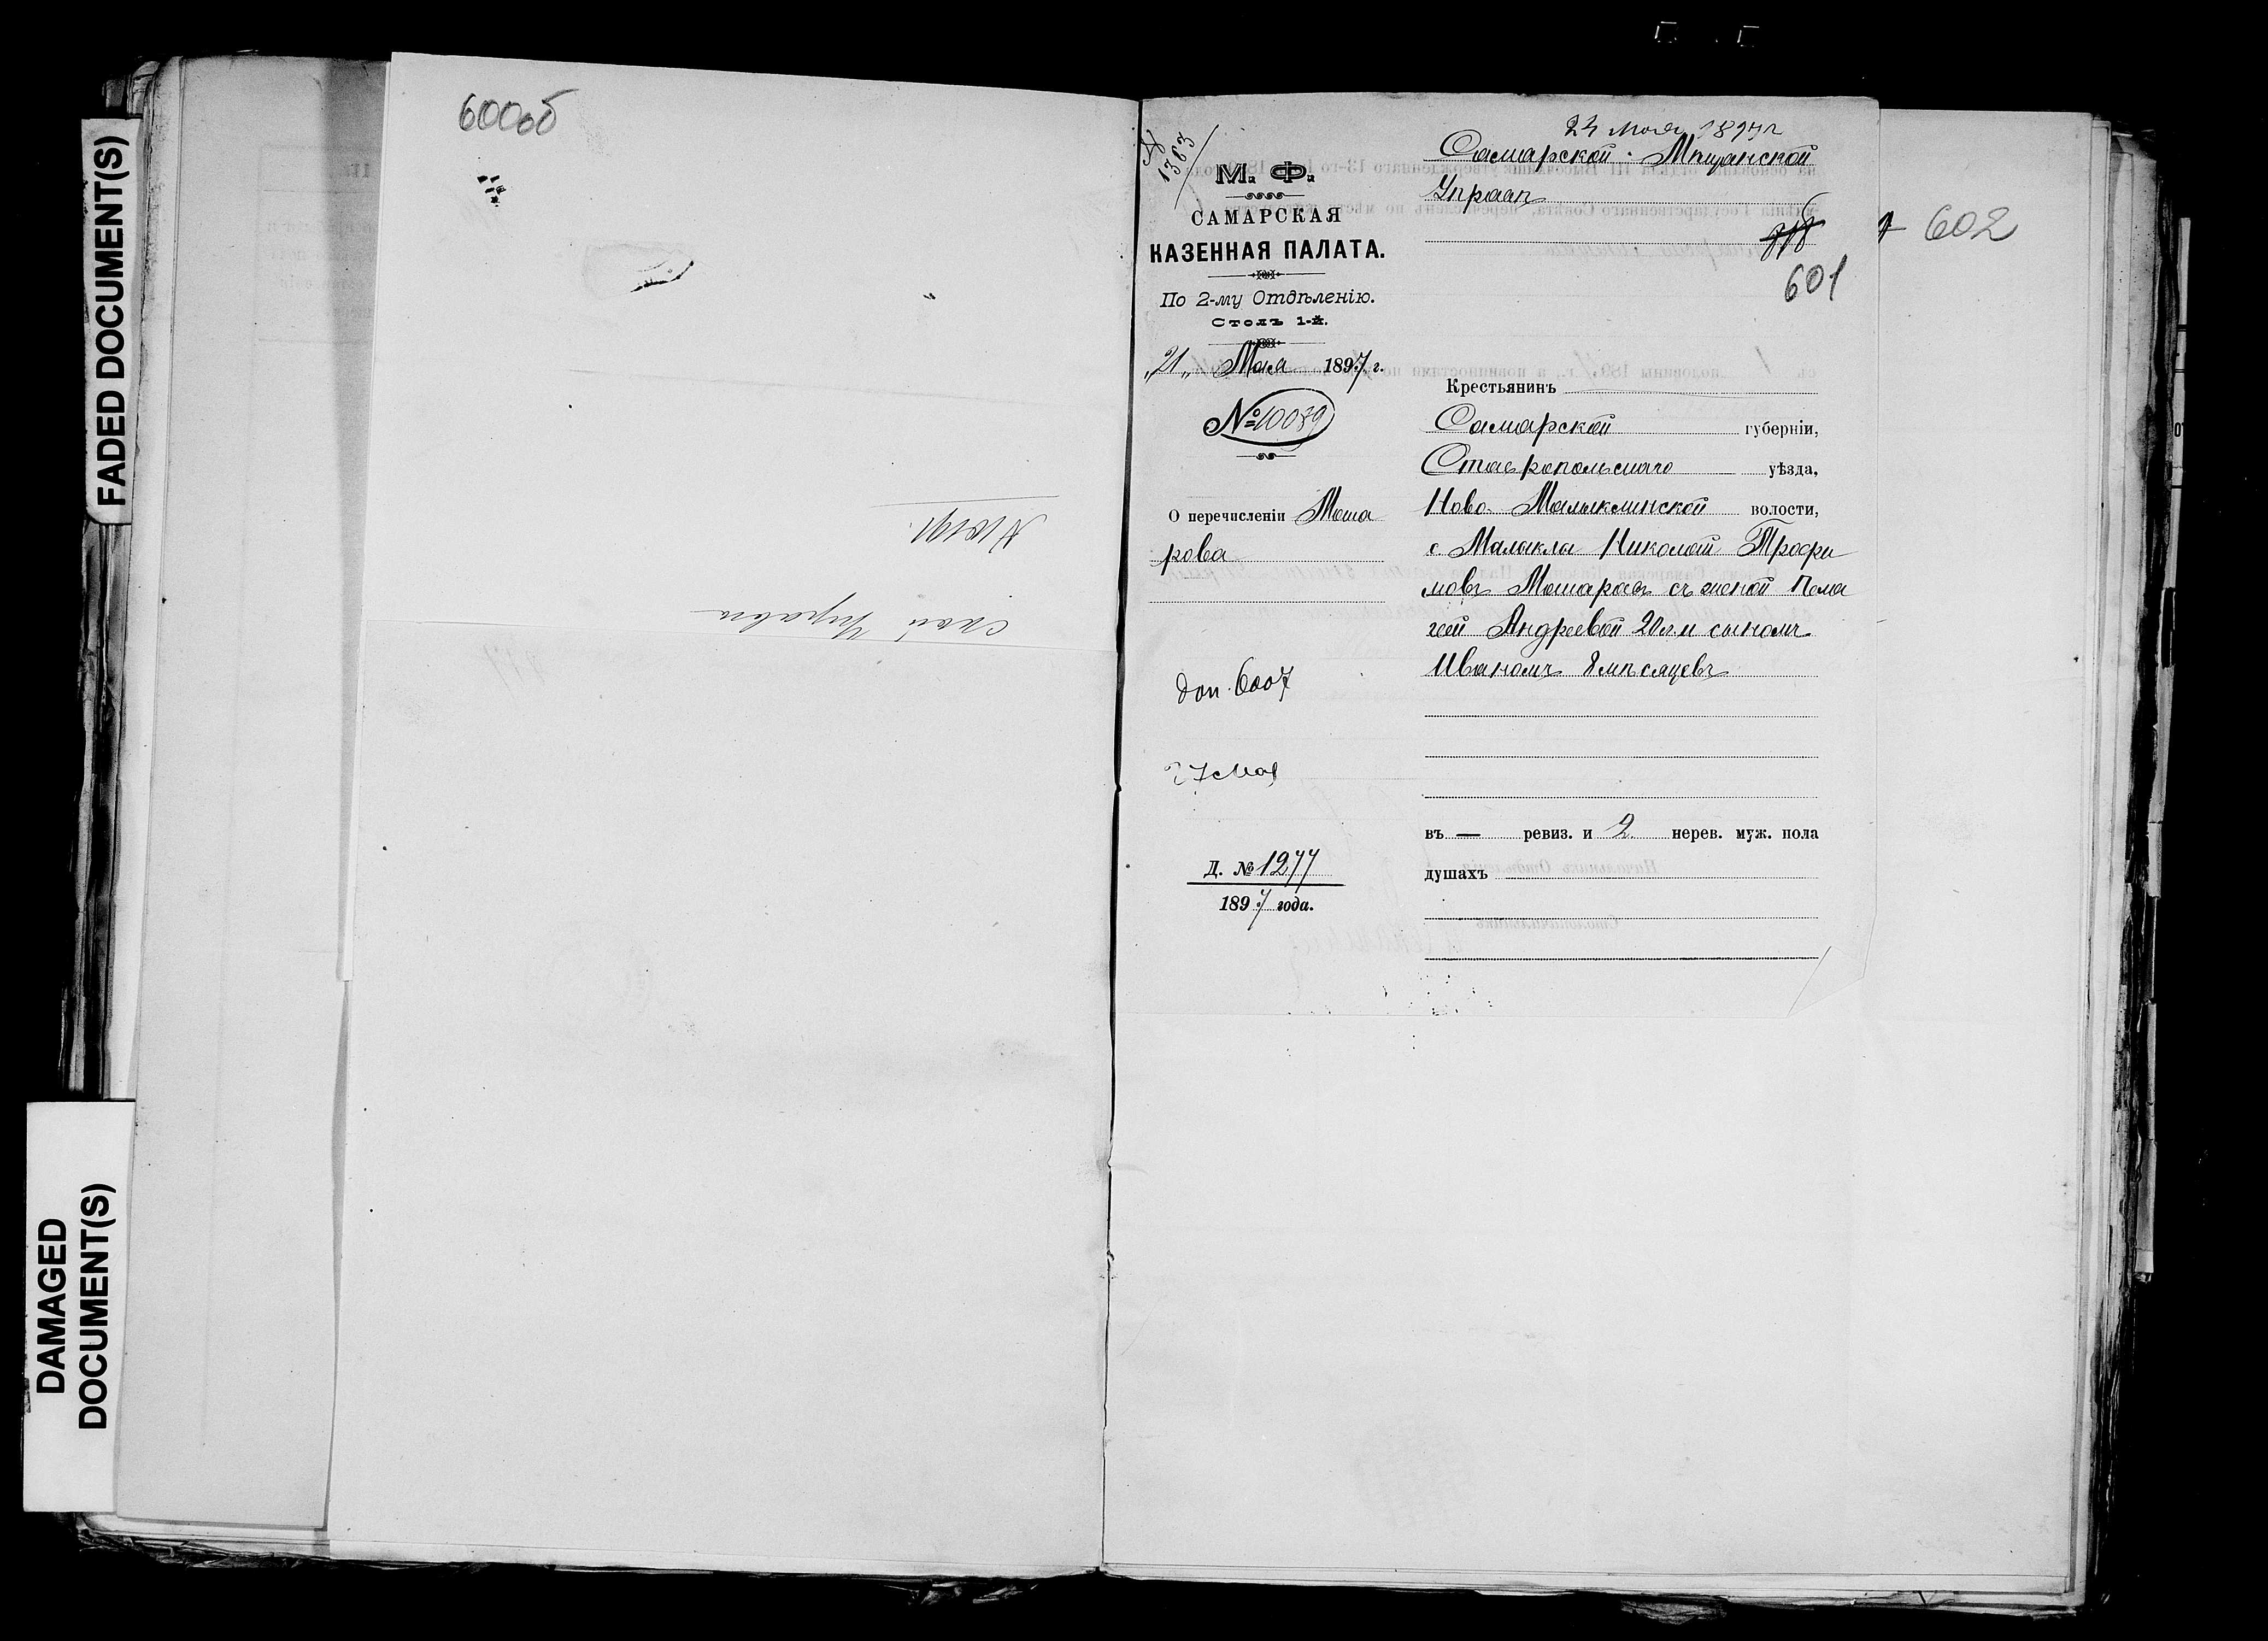 FADED DOCUMENT(S)
DAMAGED
DOCUMENT(S)
600об
№ 1383
М. Ф.
САМАРСКАЯ
КАЗЕННАЯ ПАЛАТА.
По 2-му Отдѣленію.
Столъ 1-й.
„21„ Мая 1897 г.
№ 10039
О перечисленіи Моша
рова
доп. 6007
27 мая
Д. № 1277
1897 года.
24 мая 1897 г
Самарской Мѣщанской
Управѣ
601
602
Крестьянинъ
Самарской губерніи,
Ставропольскаго уѣзда,
Ново-Малыклинской волости,
с Малыкла Николай Трофи
мовъ Мошаровъ съ женой Пела
геей Андреевой 20 л. и сыномъ
Иваномъ 8 мѣсяцевъ
въ — ревиз. и 2 нерев. муж. пола
душахъ